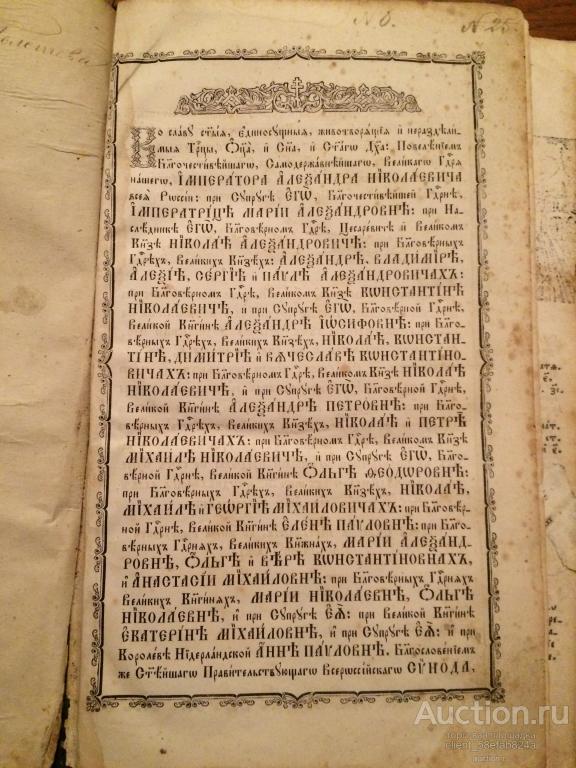 № 25.
Во славу ст҃ыѧ, єдиносꙋщныѧ, животворѧщїѧ и҆ нераздѣли-
мыѧ Трⷪ҇цы, Ѻ҆ц҃а̀, и҆ Сн҃а, и҆ Ст҃а́гѡ Дх҃а: Повелѣнїемъ
Благочестивѣйшагѡ, Самодержавнѣйшагѡ, Великагѡ Гдⷭ҇рѧ
нашегѡ, І҆МПЕРАТОРА А҆ЛЕѮАНДРА НІКОЛАЕВИЧА
всеѧ̀ Рѡссїи: при Сꙋпрꙋгѣ Є҆ГѠ̀, Бл҃гочестивѣйшей Гдⷭ҇рнѣ,
І҆МПЕРАТРИЦѢ МАРІИ А҆ЛЕѮАНДРОВНѢ: при На-
слѣдникѣ Є҆ГѠ̀, Бл҃говѣрномъ Гдⷭ҇рѣ, Цесаревичѣ и҆ Великомъ
Кн҃зѣ НІКОЛАѢ А҆ЛЕѮАНДРОВИЧѢ: при Бл҃говѣрныхъ
Гдⷭ҇рѣхъ, Великихъ Кн҃зѣхъ: А҆ЛЕѮАНДРѢ, ВЛАДИМІРѢ,
А҆ЛЕѮІѢ, СЕРГІѢ и҆ ПАѴЛѢ А҆ЛЕѮАНДРОВИЧАХЪ:
при Бл҃говѣрномъ Гдⷭ҇рѣ, Великомъ Кн҃зѣ КѠНСТАНТІНѢ
НІКОЛАЕВИЧѢ, и҆ при Сꙋпрꙋгѣ Є҆ГѠ̀, Бл҃говѣрной Гдⷭ҇рнѣ,
Великой Кнѧгинѣ А҆ЛЕѮАНДРѢ І҆ѠСИФОВНѢ: при Бл҃го-
вѣрныхъ Гдⷭ҇рѣхъ, Великихъ Кн҃зѣхъ, НІКОЛАѢ, КѠНСТАН-
ТІНѢ, ДИМИТРІѢ и҆ ВѦЧЕСЛАВѢ КѠНСТАНТІНО-
ВИЧАХЪ: при Бл҃говѣрномъ Гдⷭ҇рѣ, Великомъ Кн҃зѣ НІКОЛАѢ
НІКОЛАЕВИЧѢ, и҆ при Сꙋпрꙋгѣ Є҆ГѠ̀, Бл҃говѣрной Гдⷭ҇рнѣ,
Великой Кнѧгинѣ А҆ЛЕѮАНДРѢ ПЕТРОВНѢ: при Бл҃го-
вѣрныхъ Гдⷭ҇рѣхъ, Великихъ Кн҃зѣхъ, НІКОЛАѢ и҆ ПЕТРѢ
НІКОЛАЕВИЧАХЪ: при Бл҃говѣрномъ Гдⷭ҇рѣ, Великомъ Кн҃зѣ
МІХАИЛѢ НІКОЛАЕВИЧѢ, и҆ при Сꙋпрꙋгѣ Є҆ГѠ̀, Бл҃го-
вѣрной Гдⷭ҇рнѣ, Великой Кнѧгинѣ Ѻ҆ЛЬГѢ ѲЕОДѠРОВНѢ:
при Бл҃говѣрныхъ Гдⷭ҇рѣхъ, Великихъ Кн҃зѣхъ, НІКОЛАѢ,
МІХАИЛѢ и҆ ГЕѠРГІѢ МІХАИЛОВИЧАХЪ: при Бл҃говѣр-
ной Гдⷭ҇рнѣ, Великой Кнѧгинѣ Є҆ЛЕНѢ ПАѴЛОВНѢ: при Бл҃го-
вѣрныхъ Гдⷭ҇рнѧхъ, Великихъ Кнѧжнахъ, МАРІИ А҆ЛЕѮАНД-
РОВНѢ, Ѻ҆ЛЬГѢ и҆ ВѢРѢ КѠНСТАНТІНОВНАХЪ,
и҆ А҆НАСТАСІИ МІХАИЛОВНѢ: при Бл҃говѣрныхъ Гдⷭ҇рнѧхъ
Великихъ Кнѧгинѧхъ, МАРІИ НІКОЛАЕВНѢ, Ѻ҆ЛЬГѢ
НІКОЛАЕВНѢ, и҆ при Сꙋпрꙋгѣ Є҆Ѧ̀: при Великой Кнѧгинѣ
Є҆КАТЕРИНѢ МІХАИЛОВНѢ, и҆ при Сꙋпрꙋгѣ Є҆Ѧ̀: и҆ при
Королевѣ Нідерландской А҆ННѢ ПАѴЛОВНѢ. Благословенїемъ
же Ст҃ѣйшагѡ Правительствꙋющагѡ Всерѡссїйскагѡ СѴНОДА,
Auction.ru
торговая площадка
client_58efab824a
auction.ru